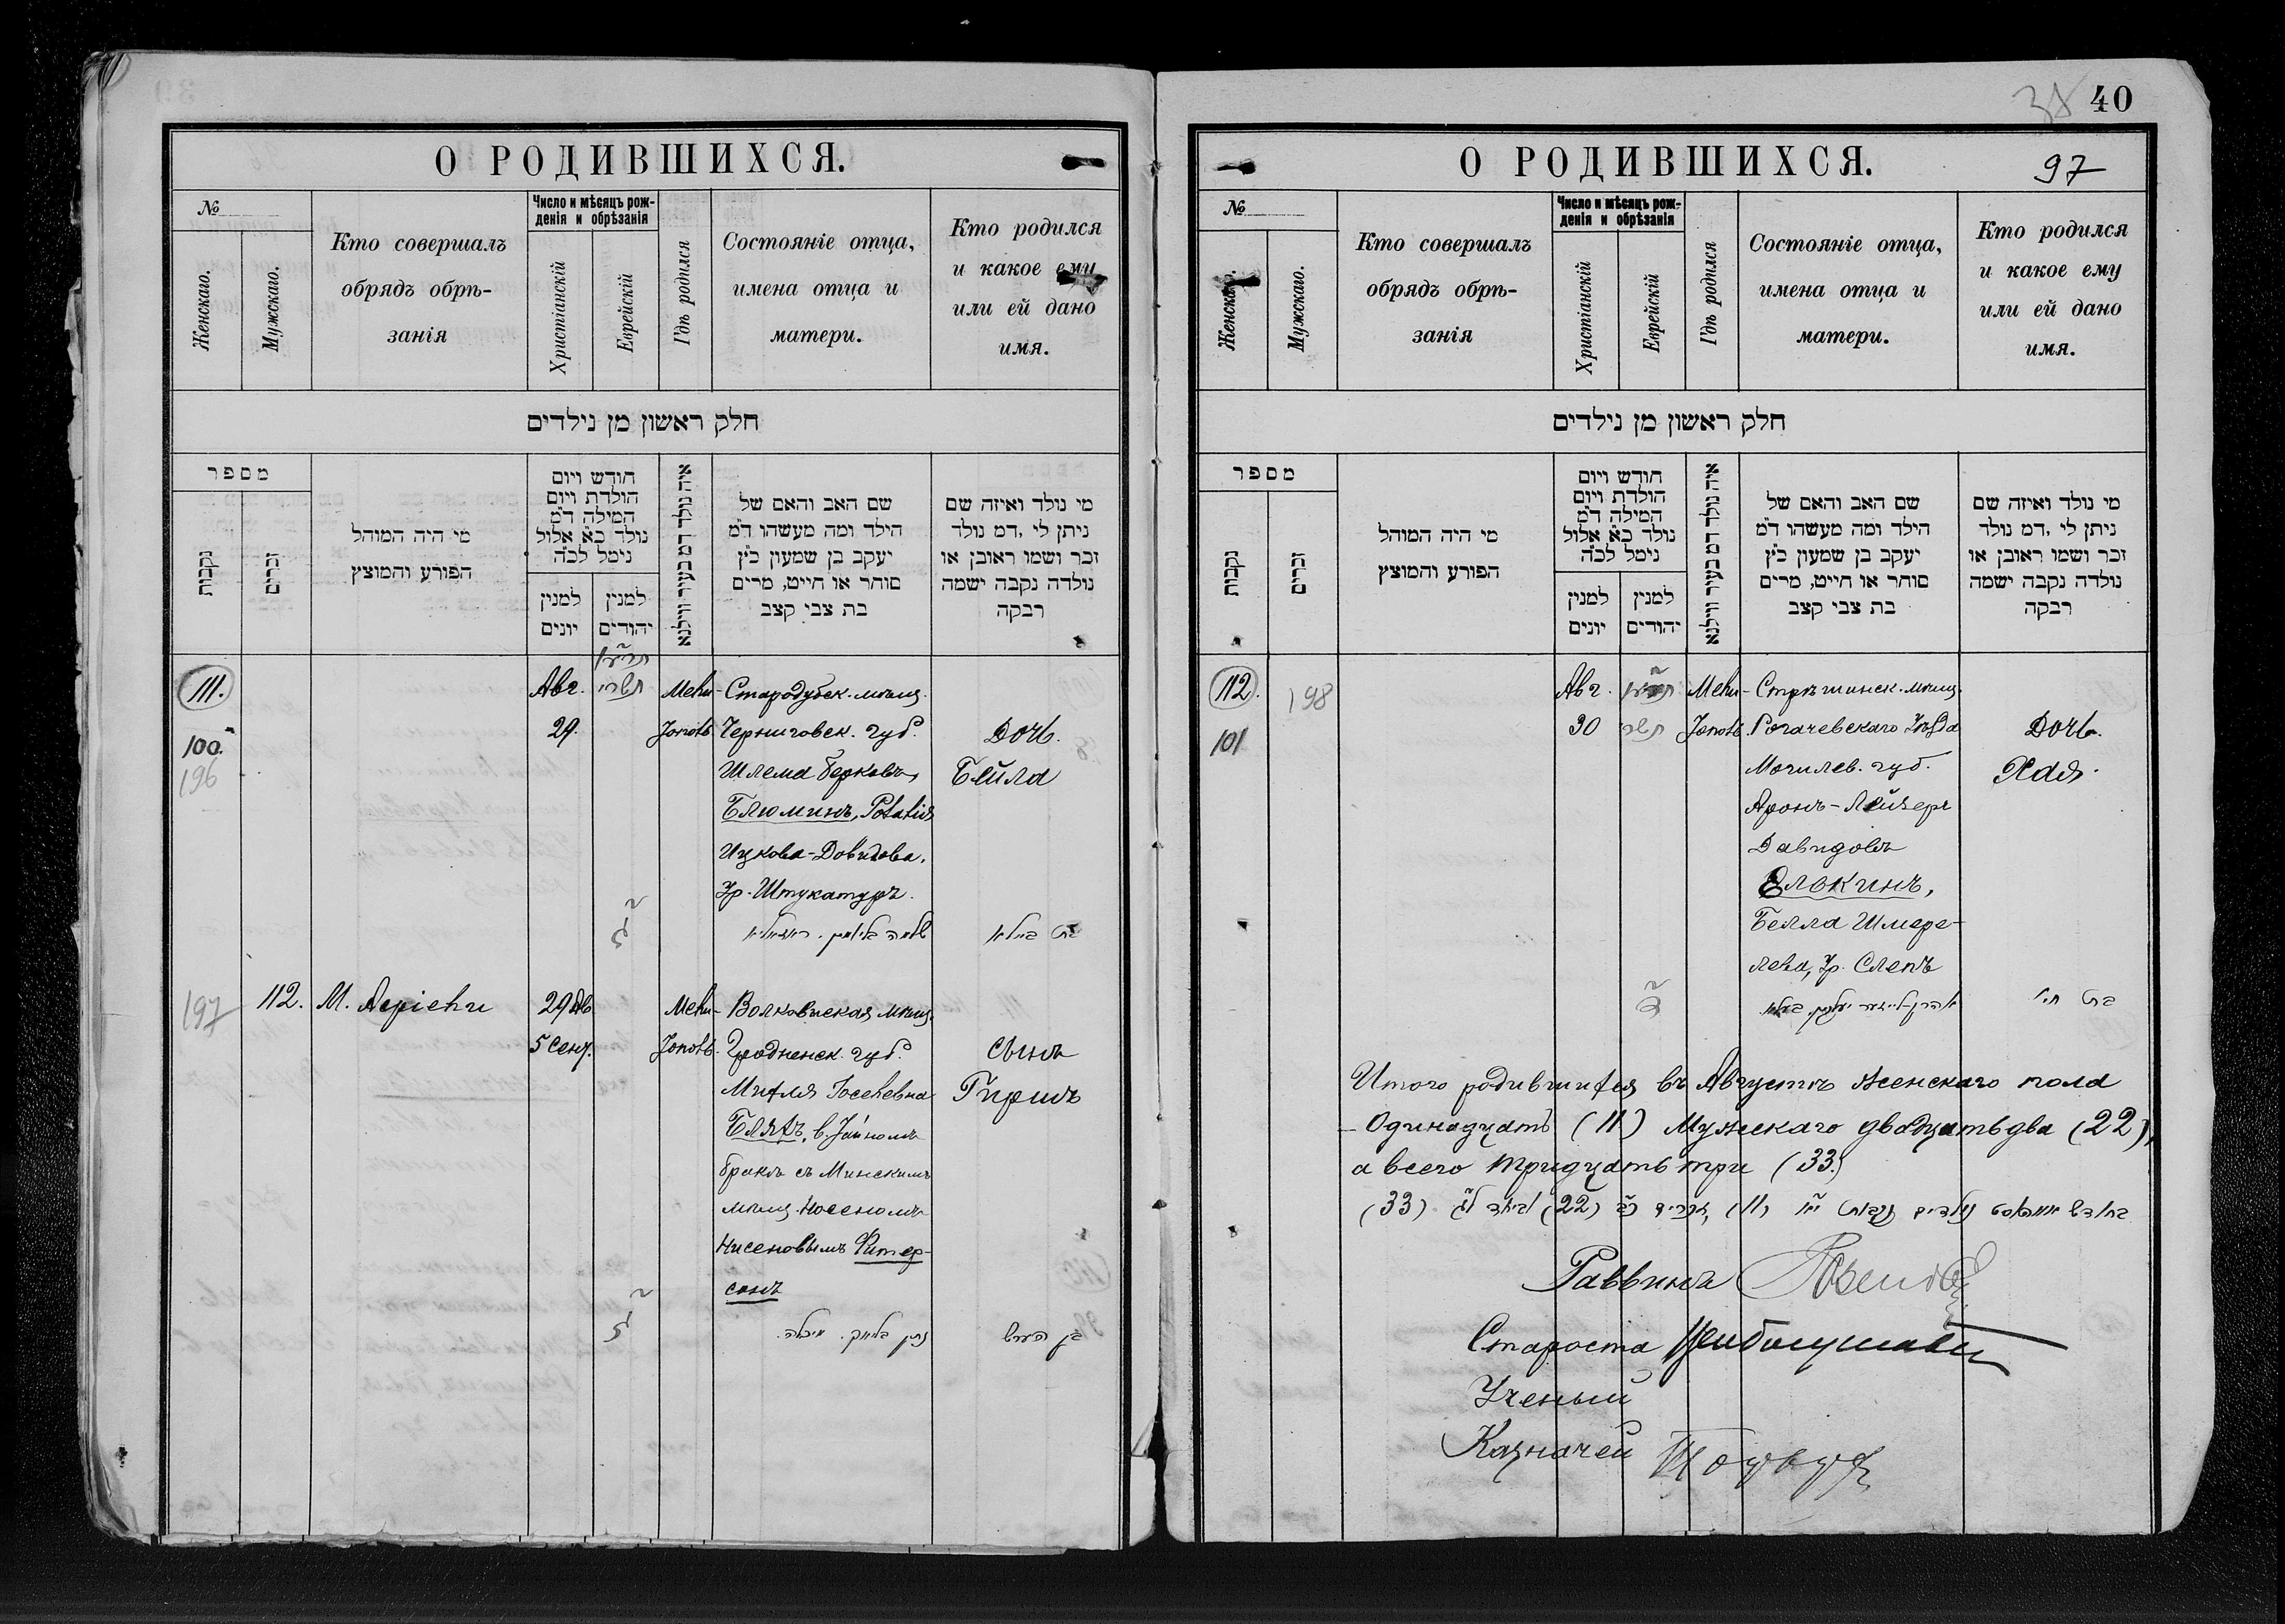 О РОДИВШИХСЯ.
№
Женскаго.
Мужскаго.
Кто совершалъ
обрядъ обрѣ-
занія
Число и мѣсяцъ рож-
денія и обрѣзанія
Христіанскій
Еврейскій
Гдѣ родился
Состояніе отца,
имена отца и
матери.
Кто родился
и какое ему
или ей дано
имя.
חלק ראשון מן נילדים
מספר
נקבות
זכרים
מי היה המוהל
הפורע והמוצץ
חודש ויום
הולדת ויום
המילה ד״מ
נולד כ״א אלול
נימל לכ״ה
למנין
יונים
למנין
יהודים
איה נולד דמ בעיר ווילנא
שם האב והאם של
הילד ומה מעשהו ד״מ
יעקב בן שמעון כ״ץ
סוחר או חייט, מרים
בת צבי קצב
מי נולד ואיזה שם
ניתן לי ,דמ נולד
זכר ושמו ראובן או
נולדה נקבה ישמה
רבקה
111.
100.
196
Авг.
29.
תשרי
Стародубск. мѣщ.
Черниговск. губ.
Шлема Берковъ
Блюминъ,
Ицкова-Довидова.
Штукатуръ.
Дочь.
Бейла
בת ביילא
197
112.
М.
29 Ав
5 Сент.
Волковиская мѣщ.
Гродненск. губ.
Бляхъ, в.
бракѣ съ Минскимъ
мѣщ. Носеномъ
Нисеновымъ Фитер-
сонъ
Сынъ
Гиршъ
בן הערש
38
40
О РОДИВШИХСЯ.
97
№
Женскаго.
Мужскаго.
Кто совершалъ
обрядъ обрѣ-
занія
Число и мѣсяцъ рож-
денія и обрѣзанія
Христіанскій
Еврейскій
Гдѣ родился
Состояніе отца,
имена отца и
матери.
Кто родился
и какое ему
или ей дано
имя.
חלק ראשון מן נילדים
מספר
נקבות
זכרים
מי היה המוהל
הפורע והמוצץ
חודש ויום
הולדת ויום
המילה ד״מ
נולד כ״א אלול
נימל לכ״ה
למנין
יונים
למנין
יהודים
איה נולד דמ בעיר ווילנא
שם האב והאם של
הילד ומה מעשהו ד״מ
יעקב בן שמעון כ״ץ
סוחר או חייט, מרים
בת צבי קצב
מי נולד ואיזה שם
ניתן לי ,דמ נולד
זכר ושמו ראובן או
נולדה נקבה ישמה
רבקה
112.
101
198
Авг.
30
תשרי
Стрѣшинск. мѣщ.
Рогачевскаго
Могилев. губ.
Аронъ-Лейзеръ
Давидовъ
Элькинъ,
Бейла Шмере-
лева,
Дочь.
Хая.
בת חי׳
Итого родившихся въ Августѣ женскаго пола
Одинадцать (11) Мужескаго двадцать два (22),
а всего тридцать три (33.)
Раввинъ
Староста
Ученый
Казначей